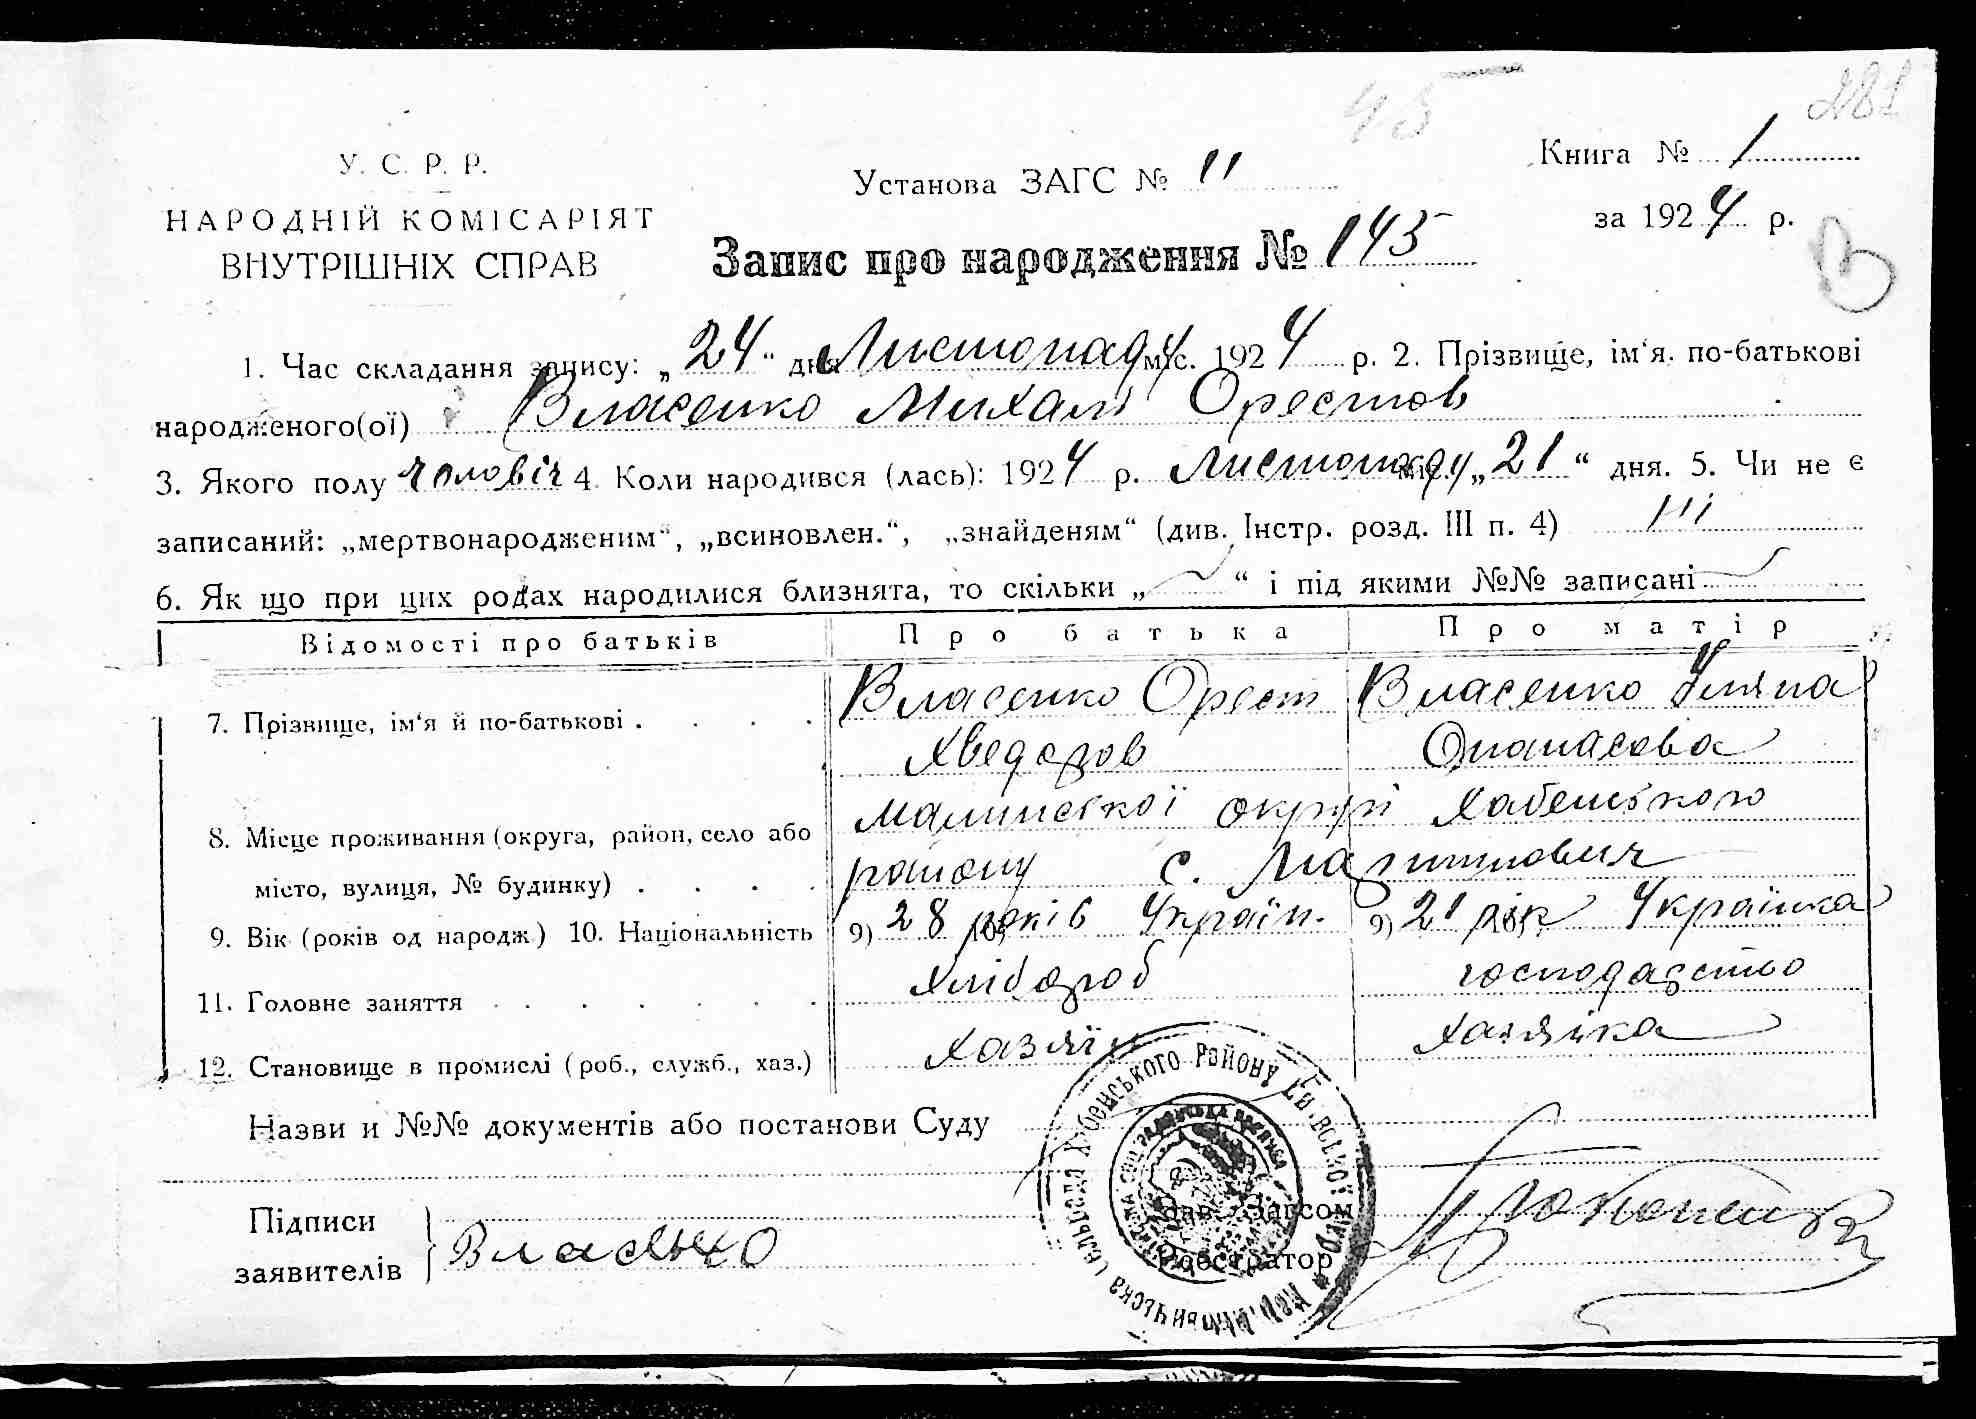 45
281
У. С. Р. Р.
НАРОДНІЙ КОМІСАРІЯТ
ВНУТРІШНІХ СПРАВ
Установа ЗАГС № 11
Книга № 1
за 1924 р.
Запис про народження № 145
В
1. Час складання запису: „24“ дня Листопаду міс. 1924 р. 2. Прізвище, ім'я. по-батькові
народженого(ої) Власенко Михаль Орестов
3. Якого полу чоловіч 4. Коли народився (лась): 1924 р. Листопаду міс. „21“ дня. 5. Чи не є
записаний: „мертвонародженим“, „всиновлен.“, „знайденям“ (див. Інстр. розд. III п. 4)
6. Як що при цих родах народилися близнята, то скільки „ “ і під якими №№ записані
Відомості про батьків Про батька Про матір
7. Прізвище, ім'я й по-батькові . . . . Власенко Орест Власенко Уляна
Хведоров Опанасова
8. Місце проживання (округа, район, село або Малинської округи Хабенського
місто, вулиця, № будинку) . . . . району с. Мартинович
9. Вік (років од народж.) 10. Національність 9) 28 років 10) Україн. 9) 21 рік 10) Українка
11. Головне заняття . . . . . Хлібороб господарство
12. Становище в промислі (роб., служб., хаз.) Хазяїн Хазяйка
Назви и №№ документів або постанови Суду
Підписи
заявителів
Власенко
Зав. Загсом
Реєстратор
Мартиновичська сільрада Хабенського Району Київської Окр.